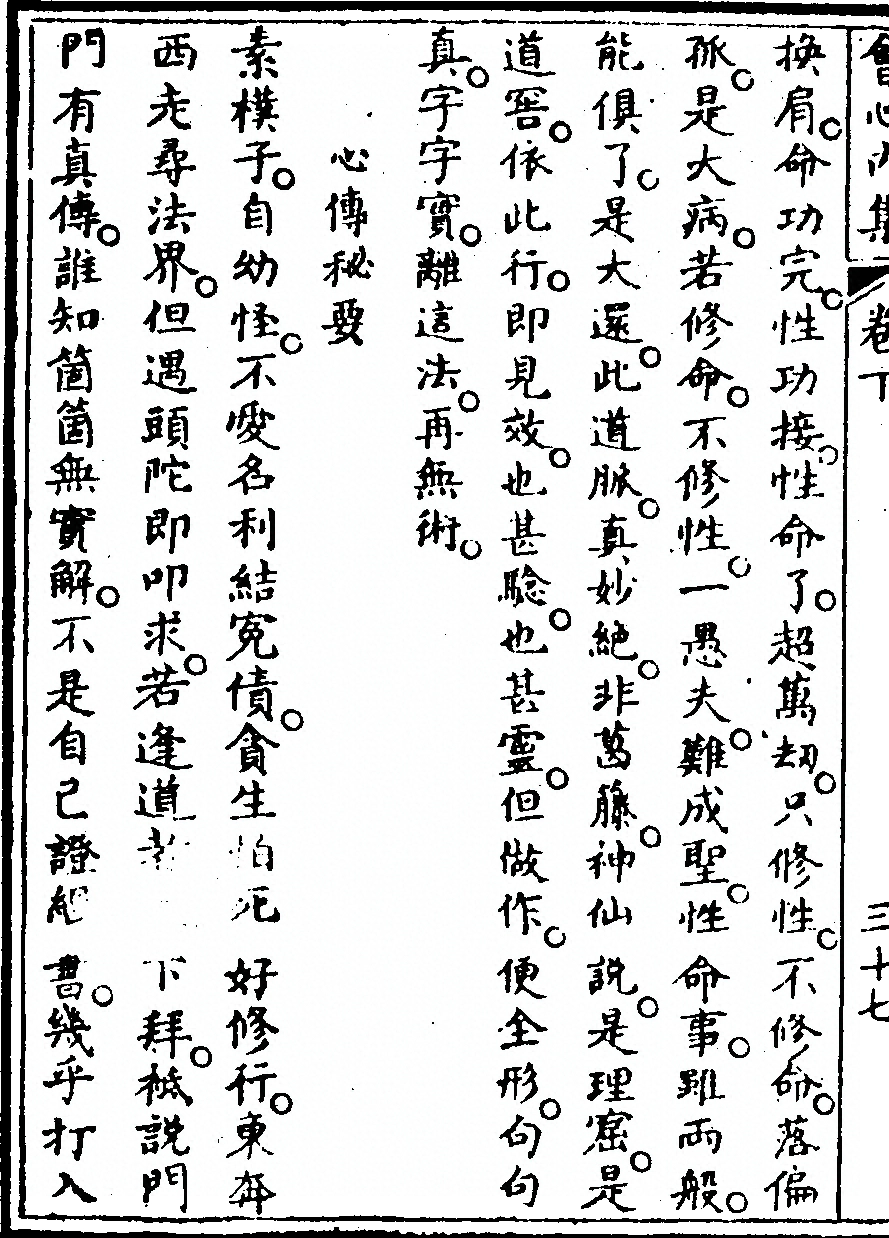 會心內集 卷下 三十七
換肩。命功完。性功接。性命了。超萬劫。只修性。不修命。落偏
孤。是大病。若修命。不修性。一愚夫。難成聖。性命事。雖兩般。
能俱了。是大還。此道脈。真妙絕。非葛藤。神仙說。是理窟。是
道窖。依此行。即見效。也甚驗。也甚靈。但做作。便全形。句句
真。字字實。離這法。再無術。
心傳秘要
素樸子。自幼怪。不愛名利結冤債。貪生怕死好修行。東奔
西走尋法界。但遇頭陀即叩求。若逢道者下拜。秪說門
門有真傳。誰知箇箇無實解。不是自己證經書。幾乎打入